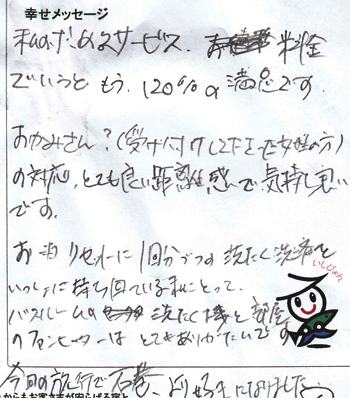 幸せメッセージ
私の求めるサービス、料金
でいうと もう、120%の満足です。
おかみさん?(受け付けして下さった女性の方)
の対応、とても良い距離感で気持ち良い
です。
お泊りセットに1回分づつの洗たく洗剤を
いしぴょん
いっしょに持ち回っている私にとって、
バスルームの洗たく機と部屋
のファンヒーターは とてもありがたいです
今回の旅行で石巻、より好きになりました
からもお客さまが安らげる宿と